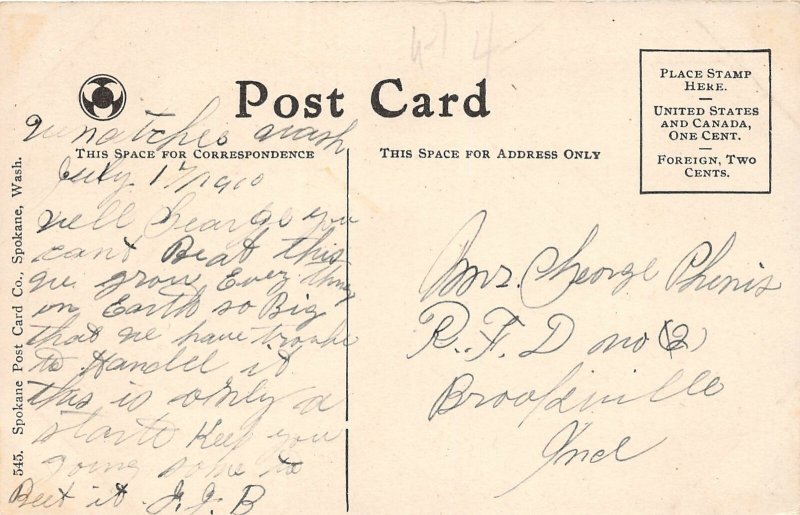 Post Card
Wenatchee wash
THIS SPACE FOR CORRESPONDENCE
July 17/1910
well Gearge you
cant Beat this
we grow Every thing
on Earth so Big
that we have trouble
to Handel it
this is only a
starte Keep you
going some to
Beet it. J. J. B
THIS SPACE FOR ADDRESS ONLY
PLACE STAMP
HERE.
UNITED STATES
AND CANADA,
ONE CENT.
FOREIGN, TWO
CENTS.
Mr. George Phenis
R. F. D no (2)
Brookville
Ind
545. Spokane Post Card Co., Spokane, Wash.